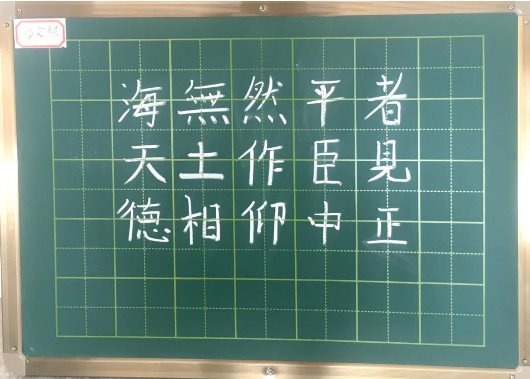 海無然平者
天土作臣見
德相仰中正